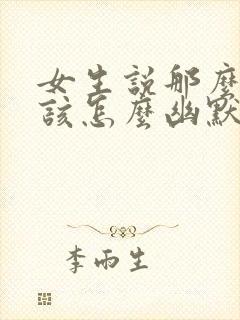 女生説那麼
該怎麼幽默
李雨生